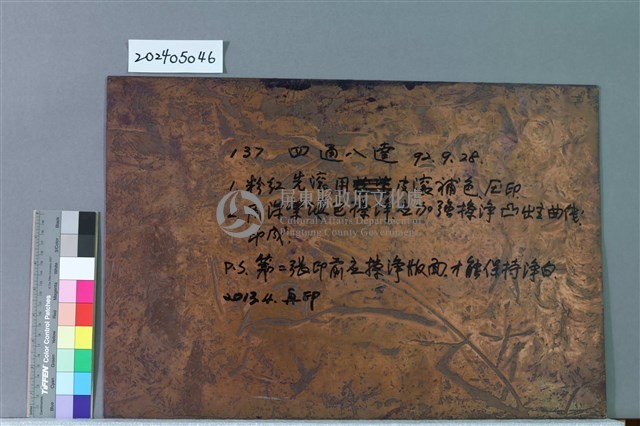 202405046
137 四通八達 92.9.28.
1. 粉紅先滾用皮滾補色压印
印成.
P.S. 第二張印前應擦淨版面,才能保持淨白
2013.4. 再印
屏東縣政府文化處
Cultural Affairs Department
Pingtung County Government
TIFFEN Color Control Patches